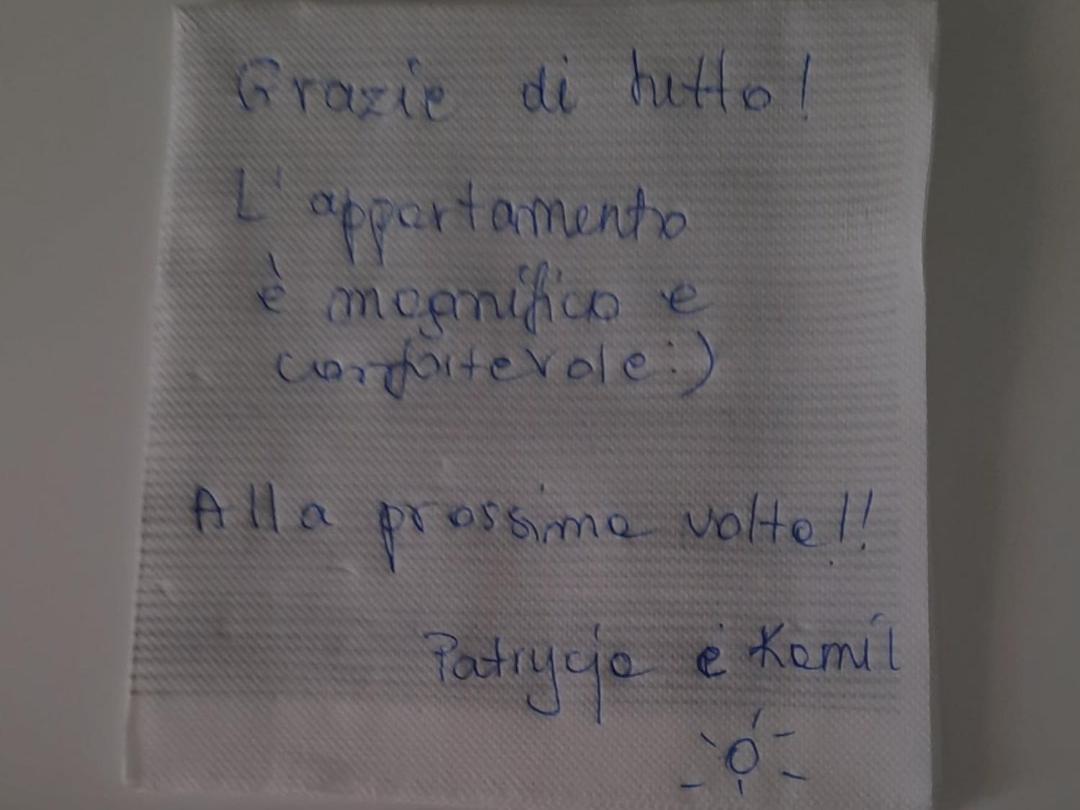 Grazie di tutto!
L'appartamento
è magnifico e
conforterole:)
Alla prossima volta!!
Patrycja e Kamil